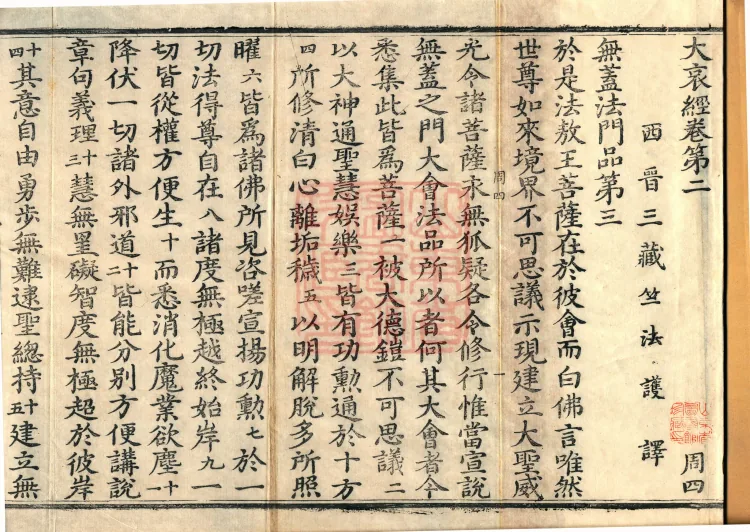 大哀經卷第二
周四
西晋三藏竺法護譯
無蓋法門品第三
於是法教王菩薩在於彼會而白佛言唯然
世尊如來境界不可思議示現建立大聖威
周四
一
光令諸菩薩永無狐疑各令修行惟當宣說
無蓋之門大會法品所以者何其大會者令
悉集此皆為菩薩一被大德鎧不可思議二
以大神通聖慧娛樂三皆有功勳通於十方
四所修清白心離垢穢五以明解脫多所照
曜六皆為諸佛所見咨嗟宣揚功勳七於一
切法得尊自在八諸度無極越終始岸九一
切皆從權方便生十而悉消化魔業欲塵十一
降伏一切諸外邪道十二皆能分別方便講說
章句義理十三慧無罣礙智度無極超於彼岸
十四其意自由勇步無難逮聖總持十五建立無